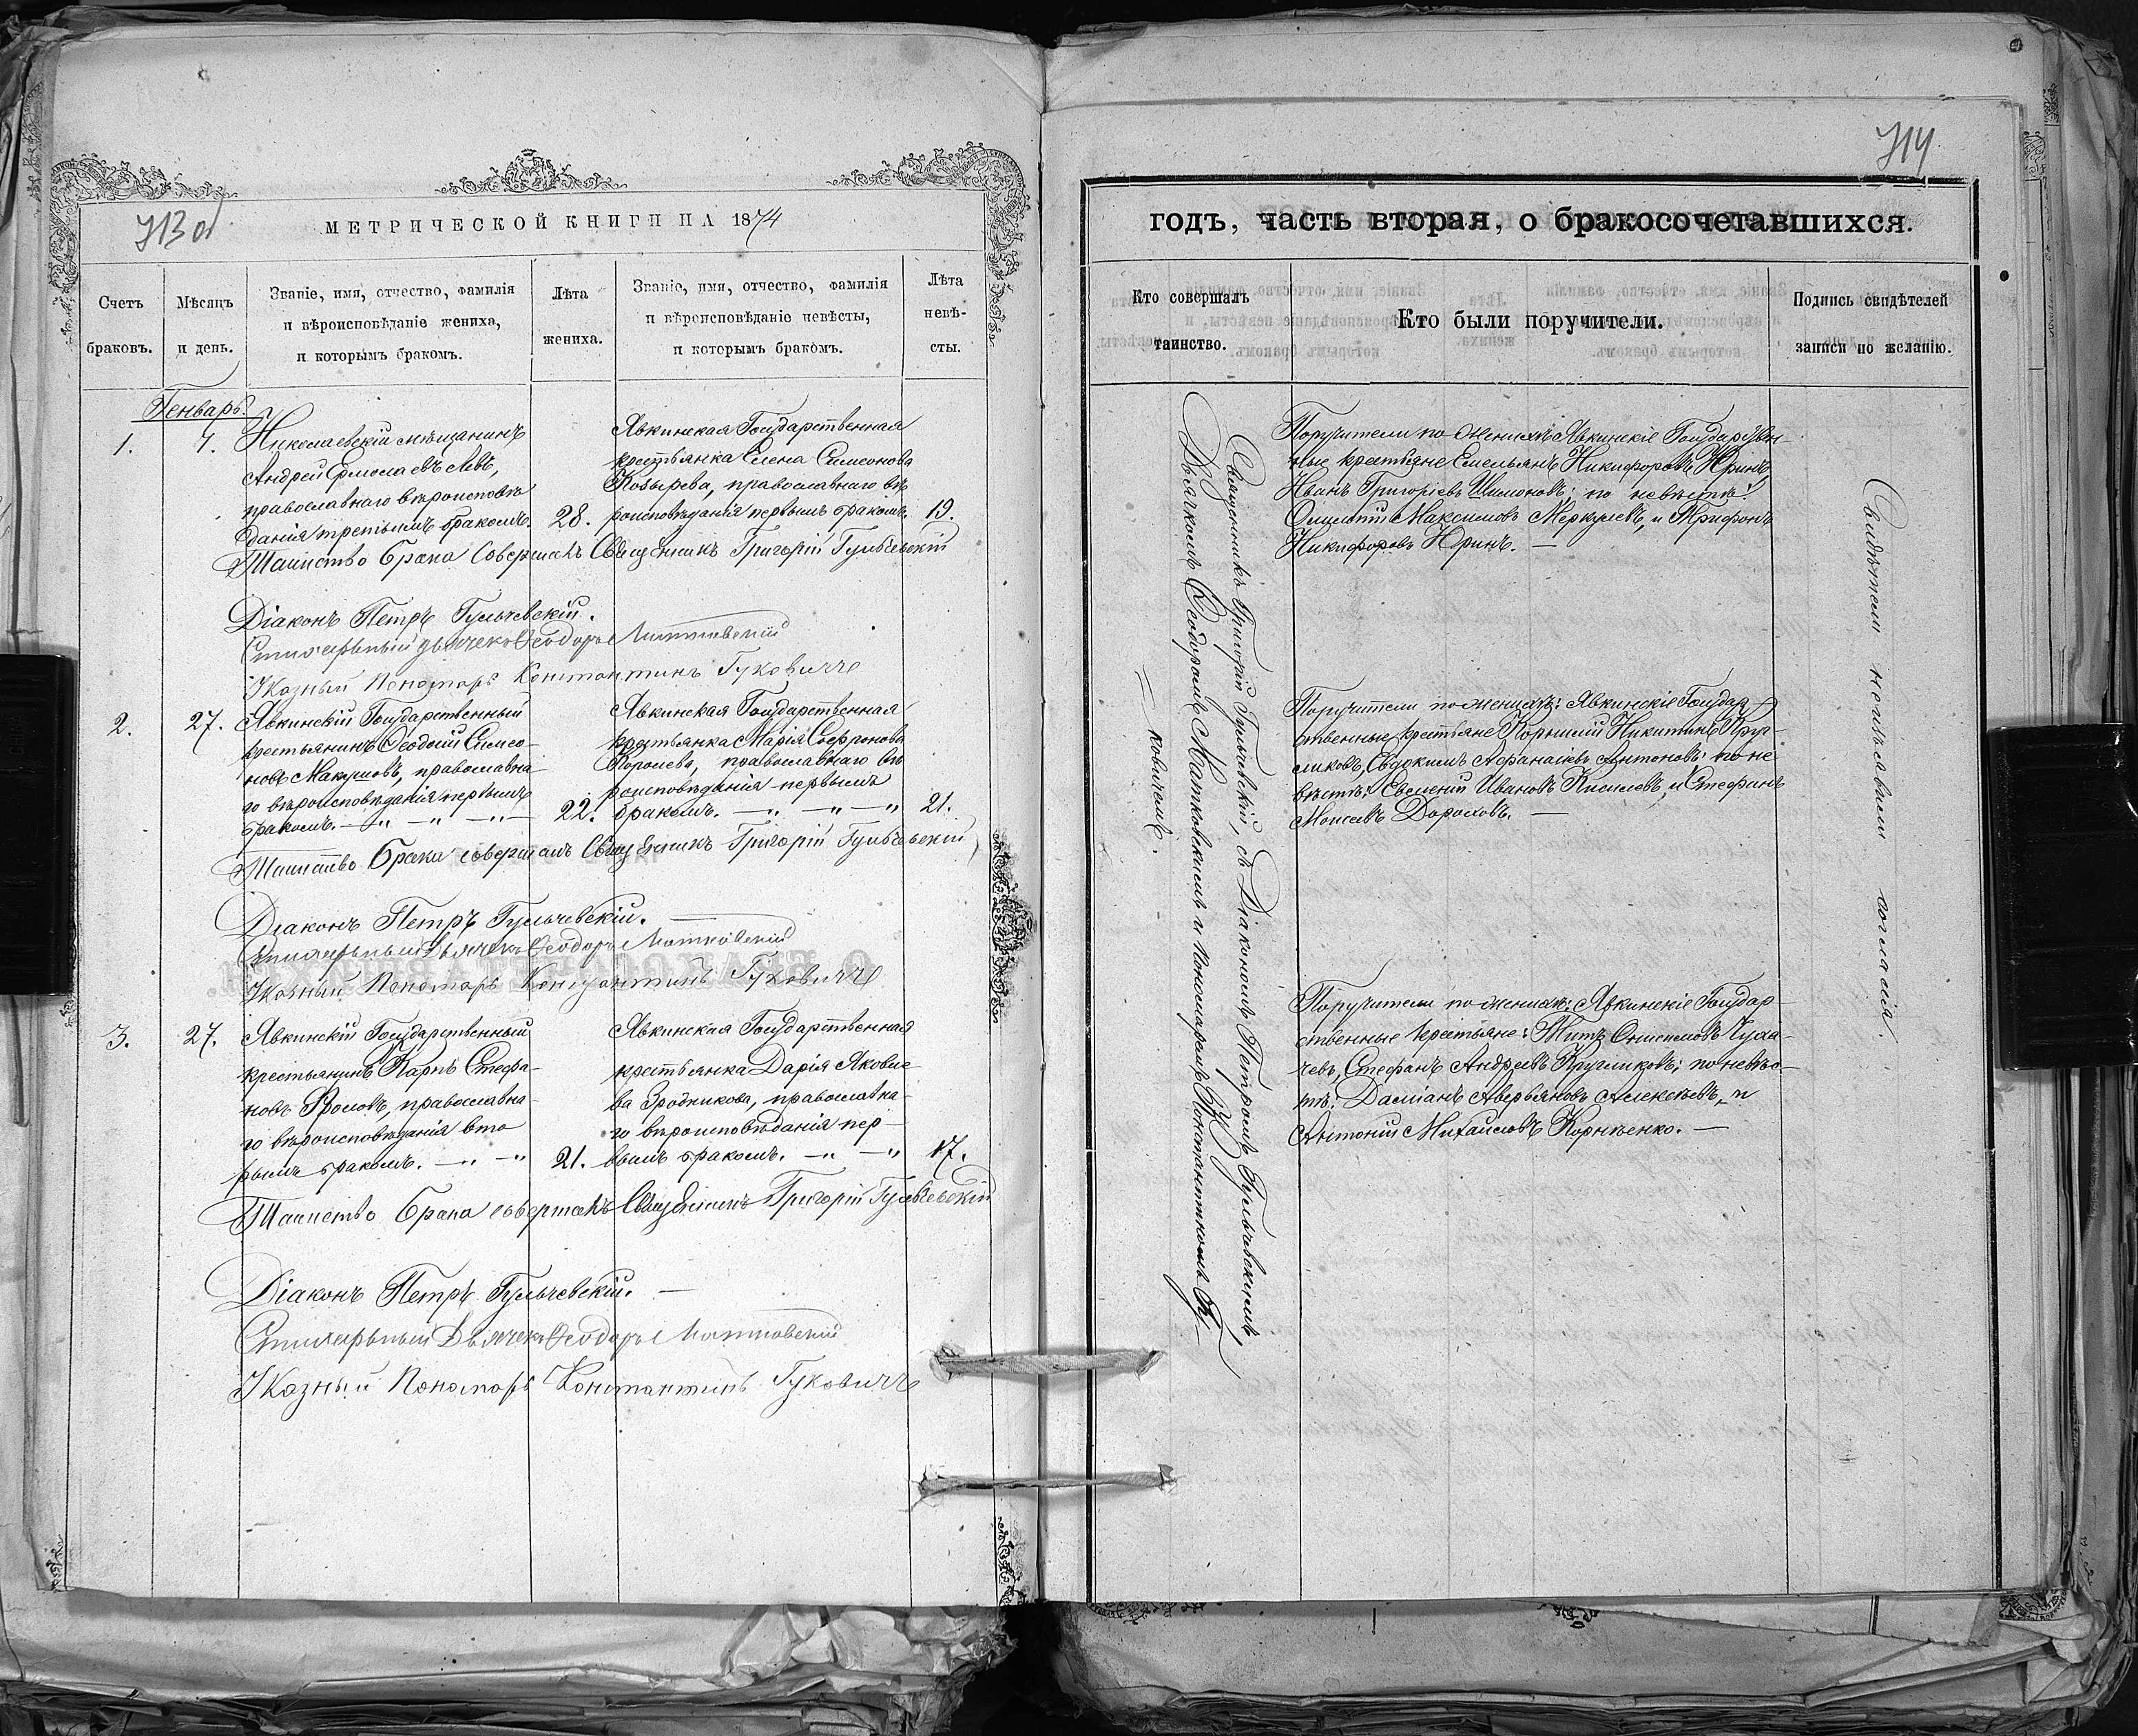 713 об
МЕТРИЧЕСКОЙ КНИГИ НА 1874
Счетъ браковъ.
Мѣсяцъ и день.
Званіе, имя, отчество, фамилія
и вѣроисповѣданіе жениха,
и которымъ бракомъ.
Лѣта жениха.
Званіе, имя, отчество, фамилія
и вѣроисповѣданіе невѣсты,
и которымъ бракомъ.
Лѣта невѣ-
сты.
Генварь.
1.
7.
Николаевскій мѣщанинъ
Андрей Ермолаевъ Левъ,
православнаго вѣроисповѣ
данія третьимъ бракомъ.
28.
Явкинская Государственная
крестьянка Елена Симеонова
Козырева, православнаго вѣ
роисповѣданія первымъ бракомъ.
19.
Таинство брака совершалъ Священникъ Григорій Гульчевскій
Діаконъ Петръ Гульчевскій.
Стихарный дьячекъ Ѳеодоръ Матковскій
Указный Пономарь Константинъ Гуковичъ
2.
27.
Явкинскій Государственный
крестьянинъ Ѳеодосій Симео
новъ Макушовъ, православна
го вѣроисповѣданія первымъ
бракомъ. — „ — „ — „ —
22.
Явкинская Государственная
крестьянка Марія Софронова
Королева, православнаго вѣ
роисповѣданія первымъ
бракомъ. — „ — „ — „
21.
Таинство брака совершалъ Священникъ Григорій Гульчевскій
Діаконъ Петръ Гульчевскій. —
Стихарный Дьячекъ Ѳеодоръ Матковскій
Указный Пономарь Константинъ Гуковичъ
3.
27.
Явкинскій Государственный
крестьянинъ Карпъ Стефа-
новъ Фроловъ, православна-
го вѣроисповѣданія вто
рымъ бракомъ. — „ — „
21.
Явкинская Государственная
крестьянка Дарія Яковле
ва Зродникова, православна-
го вѣроисповѣданія пер-
вымъ бракомъ. — „ — „
17.
Таинство брака совершалъ Священникъ Григорій Гульчевскій
Діаконъ Петръ Гульчевскій. —
Стихарный Дьячекъ Ѳеодоръ Матковскій
Указный Пономарь Константинъ Гуковичъ
714
годъ, часть вторая, о бракосочетавшихся.
Кто совершалъ
таинство.
Кто были поручители.
Подпись свидѣтелей
записи по желанію.
Священникъ Григорій Гульчевскій, съ Діакономъ Петромъ Гульчевскимъ,
Дьячкомъ Ѳеодоромъ Матковскимъ и Пономаремъ Константиномъ Гу-
ковичемъ.
Поручители по женихѣ Явкинскіе Государствен-
ные крестьяне Емельянъ Никифоровъ Юринъ,
Иванъ Григорьевъ Шимоновъ; по невѣстѣ:
Максимовъ Меркулевъ, и Трифонъ
Никифоровъ Юринъ. —
Поручители по женихѣ: Явкинскіе Государ
ственные крестьяне Корнилій Никитинъ Круг-
ликовъ, Евдокимъ Афанасіевъ Антоновъ; по не
вѣстѣ: Евсевій Ивановъ Киселевъ, и Стефанъ
Моисеевъ Дороховъ. —
Поручители по женихѣ: Явкинскіе Государ-
ственные крестьяне: Титъ Онисимовъ
Стефанъ Андреевъ Кругликовъ; по невѣс-
тѣ: Даміанъ Аверьяновъ Алексѣевъ, и
Антоній Михайловъ Корнѣенко. —
Свидѣтели неизъявили согласія.